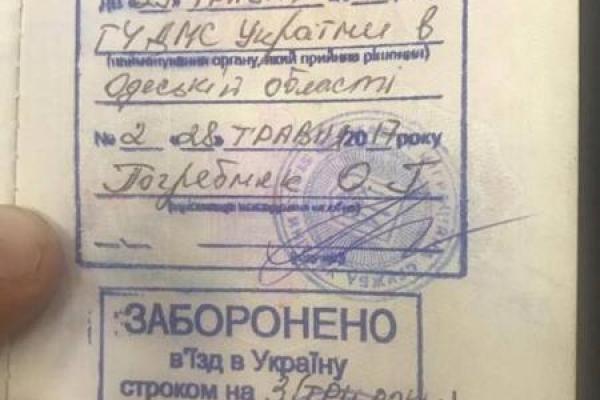 ГУДМС України в
(найменування органу, який прийняв рішення)
Одеській області
№ 2 «28» ТРАВНЯ 2017 року
Погребняк О. Г
СЛУЖБА
ЗАБОРОНЕНО
в'їзд в Україну
строком на 3 (три роки)